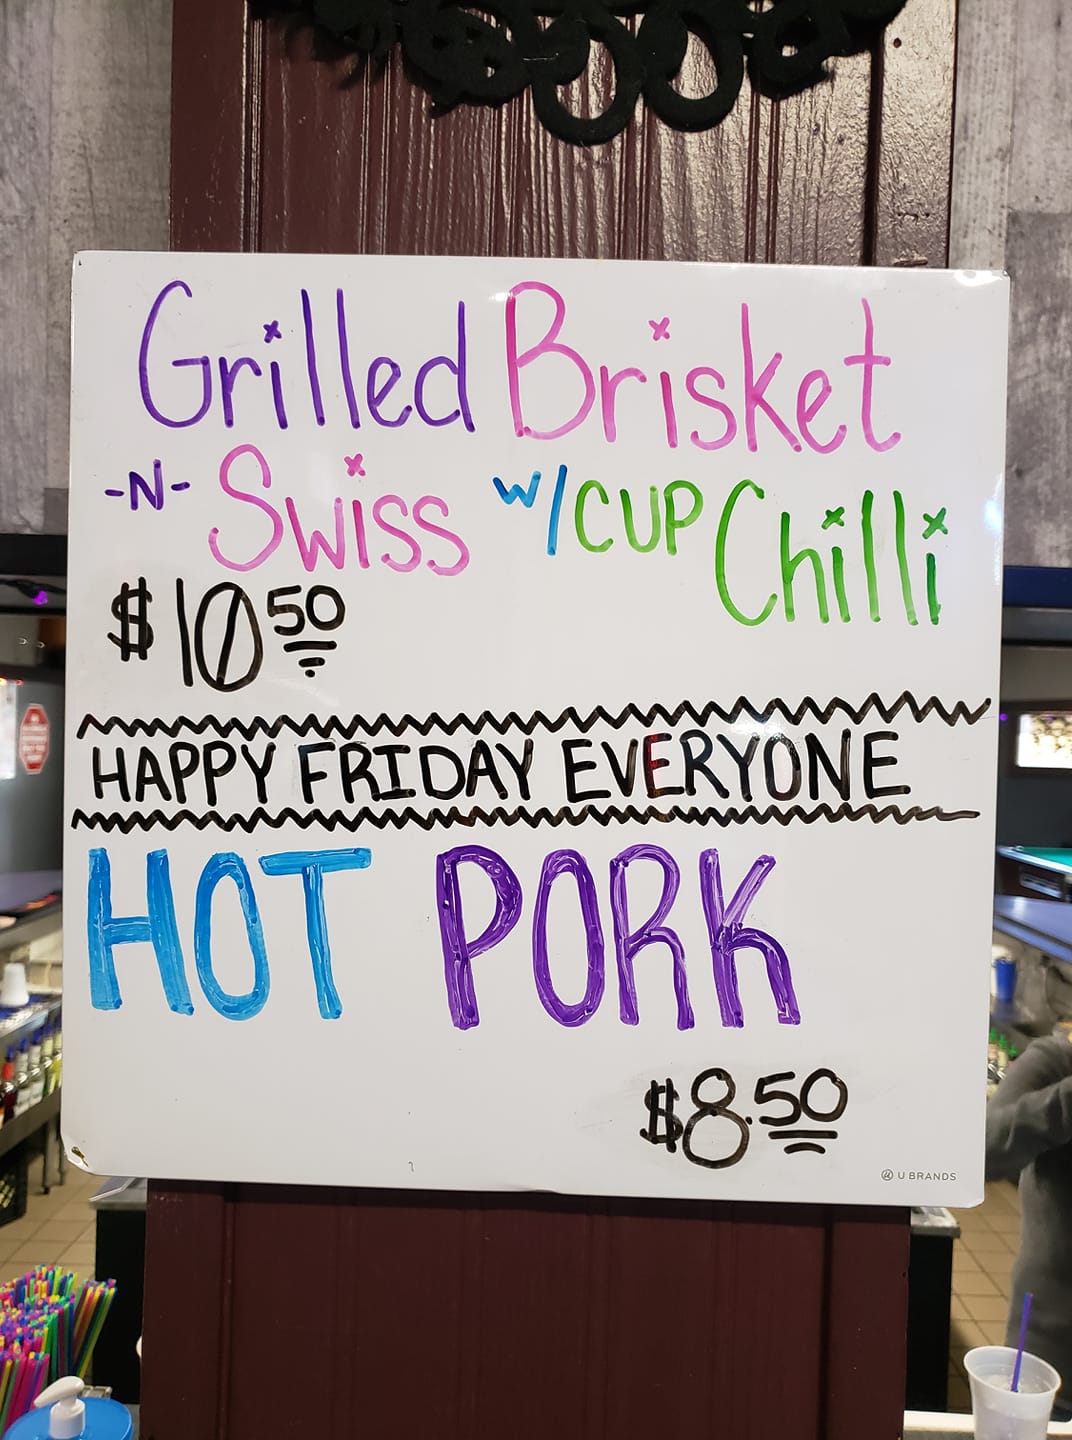 Grilled Brisket
-N- Swiss w/CUP Chilli
$10 50
HAPPY FRIDAY EVERYONE
HOT PORK
$8.50
U BRANDS